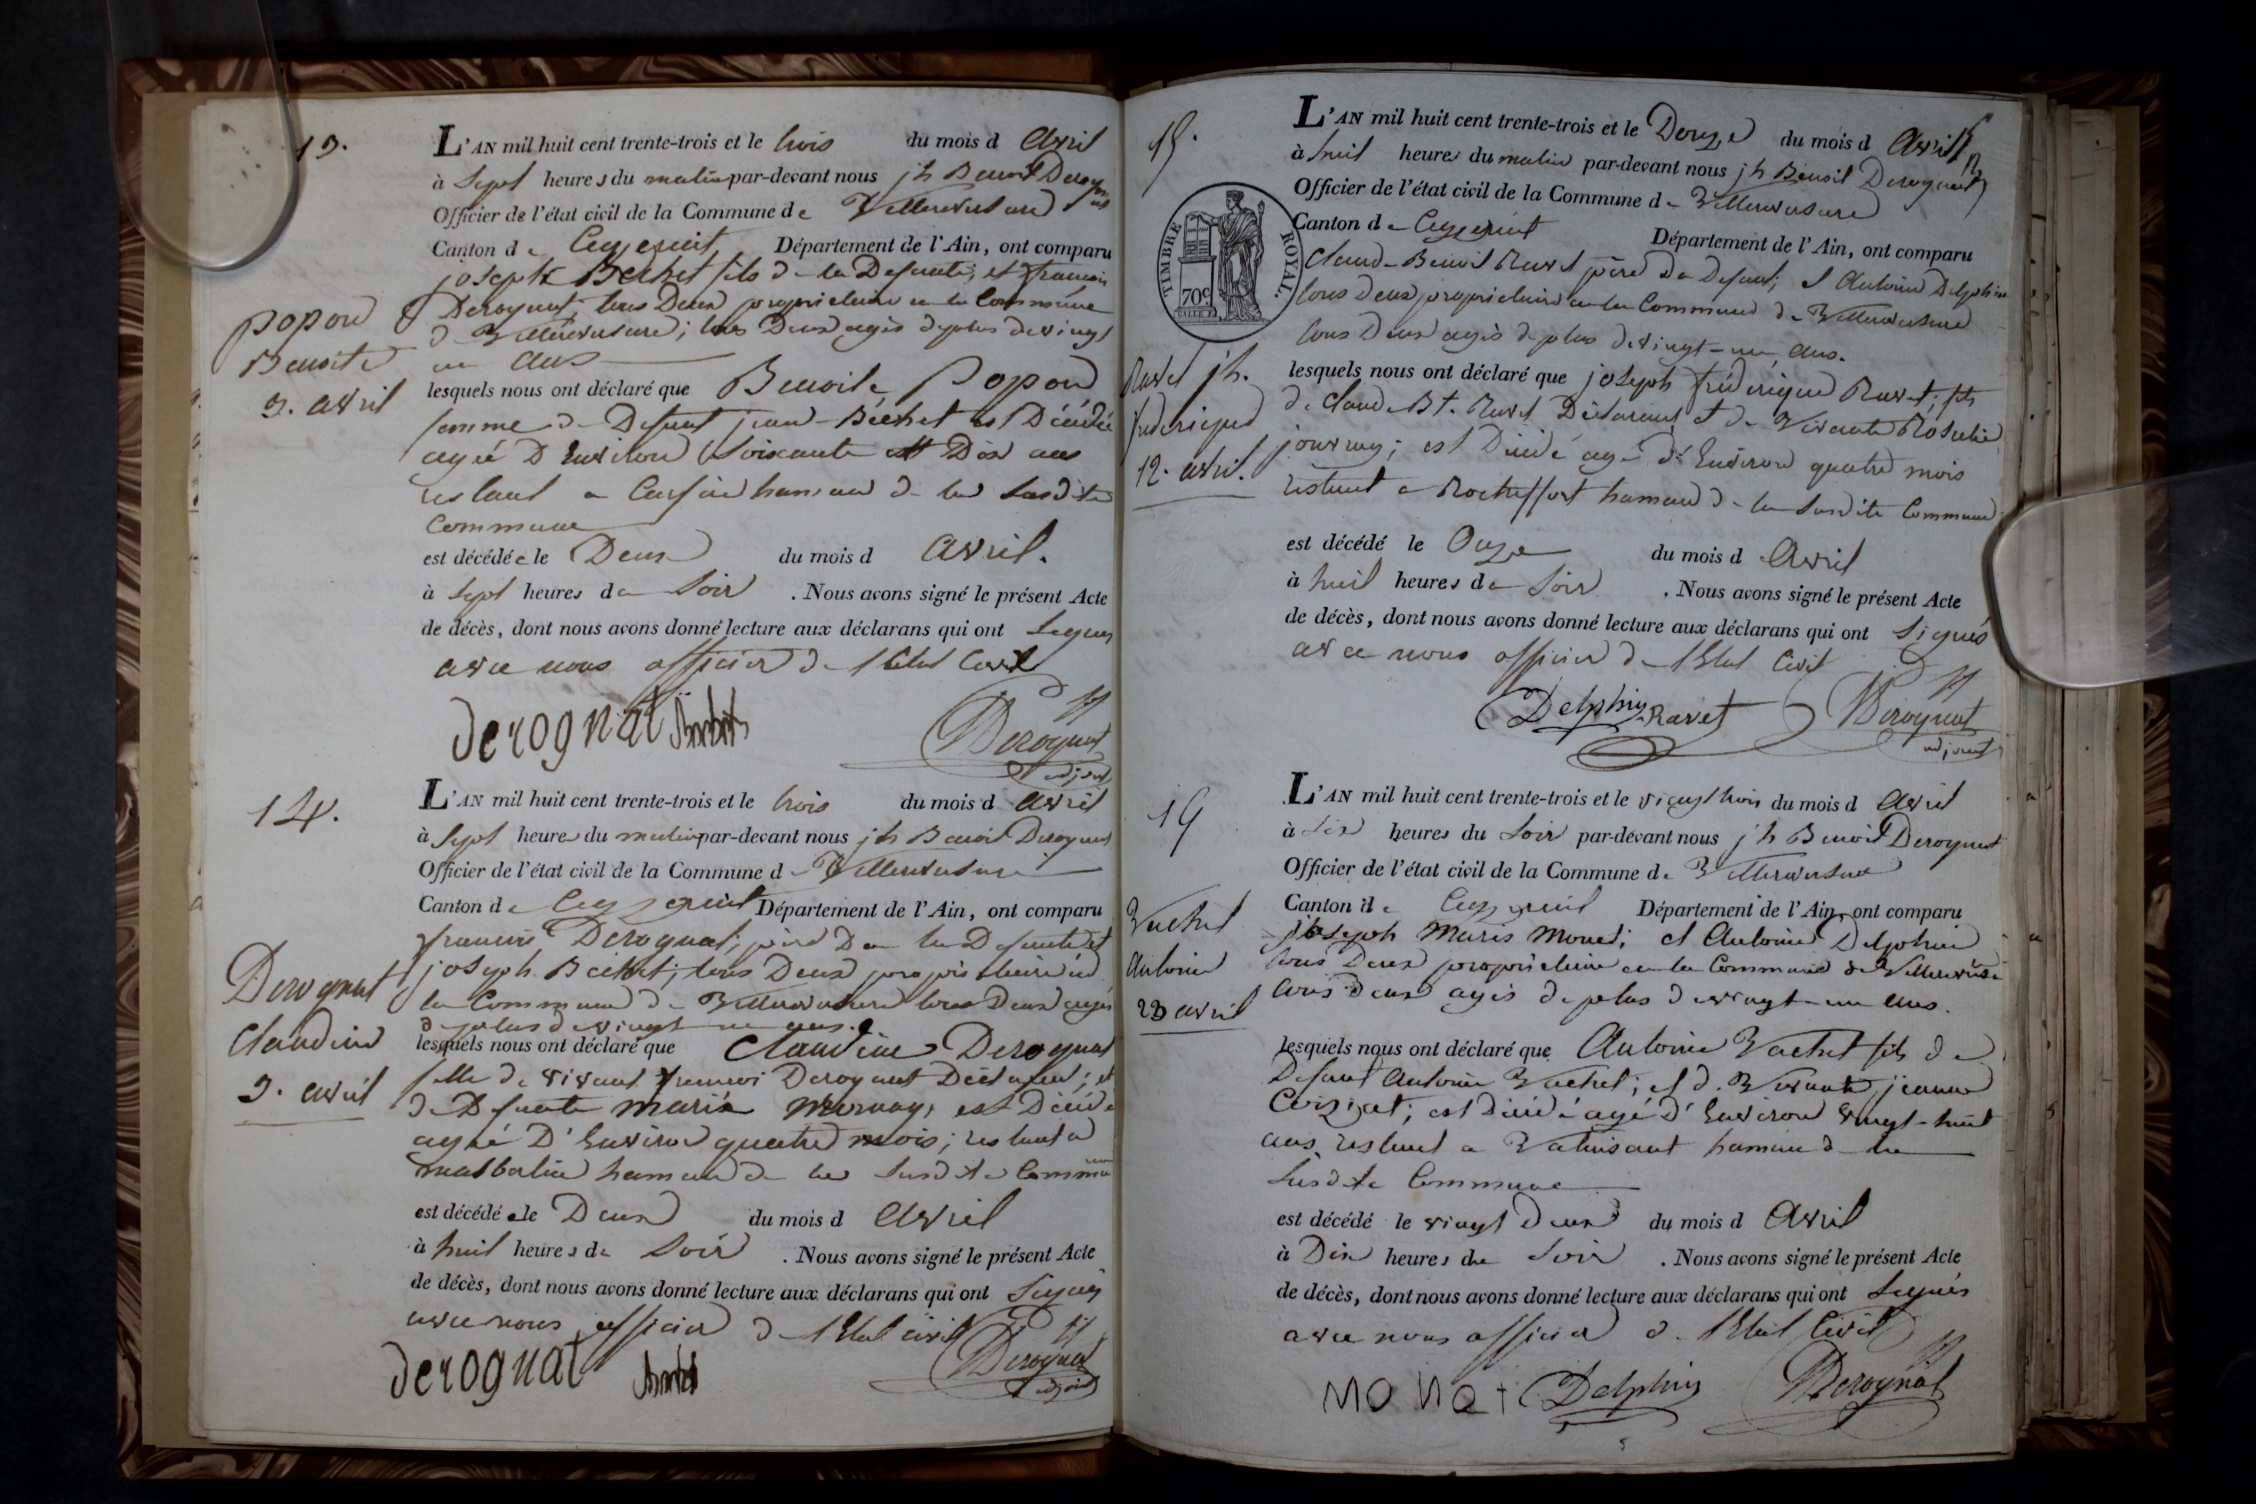 13.
L'AN mil huit cent trente-trois et le trois du mois d avril
à sept heures du matin par-devant nous jh Benoit Derognat
Officier de l'état civil de la Commune de Villereversure
Canton de Ceyzeriat Département de l'Ain, ont comparu
joseph Bechet fils de la Defunte, et francois
Derognat, tous Deux proprietaire en la Commune
de Villereversure; tous Deux agés de plus de vingt
un ans
popon
Benoite
3. avril
lesquels nous ont déclaré que Benoite Popon
femme de Defunt jean Bechet est Décédée
agée D'Environ Soixante et Dix ans
restant a hameau de la Susdite
Commune
est décédée le Deux du mois d avril.
à sept heures du Soir . Nous avons signé le présent Acte
de décès, dont nous avons donné lecture aux déclarans qui ont Signés
avec nous officier de l'Etat Civil
derognat Derognat
adjoint
14.
L'AN mil huit cent trente-trois et le trois du mois d avril
à sept heures du matin par-devant nous jh Benoit Derognat
Officier de l'état civil de la Commune de Villereversure
Canton de Ceyzeriat Département de l'Ain, ont comparu
francois Derognat, père De la Defunte et
joseph Bechet, tous Deux proprietaire en
la Commune de Villereversure tous Deux agés
de plus de vingt un ans.
Derognat
Claudine
3. avril
lesquels nous ont déclaré que Claudine Derognat
fille de vivant francois Derognat Déclarant; et
de Defunte maria est Décédée
agée D'Environ quatre mois; restant a
hameau de la Susdite Commune
est décédé e le Deux du mois d avril
à huit heures du Soir . Nous avons signé le présent Acte
de décès, dont nous avons donné lecture aux déclarans qui ont Signés
avec nous officier de l'Etat civil
derognat Derognat
adjoint
15.
L'AN mil huit cent trente-trois et le Douze du mois d avril
à huit heures du matin par-devant nous jh Benoit Derognat
Officier de l'état civil de la Commune de Villereversure
Canton de Ceyzeriat Département de l'Ain, ont comparu
TIMBRE ROYAL.
70c
Claude Benoit Ravet père du Defunt; et Antoine Delphin
tous Deux proprietaire en la Commune de Villereversure
tous Deux agés de plus de vingt-un ans.
Ravet jh.
frederique
12. avril.
lesquels nous ont déclaré que joseph frédérique Ravet; fils
de Claude Bt. Ravet Déclarant et de Vivante Rosalie
est Décédé agé D'Environ quatre mois
restant a Rocheffort hameau de la Susdite Commune
est décédé le Onze du mois d avril
à huit heures du Soir . Nous avons signé le présent Acte
de décès, dont nous avons donné lecture aux déclarans qui ont Signés
avec nous officier de l'Etat Civil
Delphin Ravet Derognat
adjoint
L'AN mil huit cent trente-trois et le vingt trois du mois d avril
à six heures du Soir par-devant nous jh Benoit Derognat
Officier de l'état civil de la Commune de Villereversure
Canton de Ceyzeriat Département de l'Ain, ont comparu
joseph Maris Monet; et Antoine Delphin
tous Deux proprietaire en la Commune de Villereversure
tous deux agés de plus de vingt-un ans.
Vachet
Antoine
23 avril
lesquels nous ont déclaré que Antoine Vachet fils de
Defunt Antoine Vachet; et de Vivante jeanne
est Décédé agé D'Environ vingt-huit
ans restant a hameau de la
Susdite Commune
est décédé le vingt deux du mois d avril
à Dix heures du Soir . Nous avons signé le présent Acte
de décès, dont nous avons donné lecture aux déclarans qui ont Signés
avec nous officier de l'Etat Civil
Monet Delphin Derognat